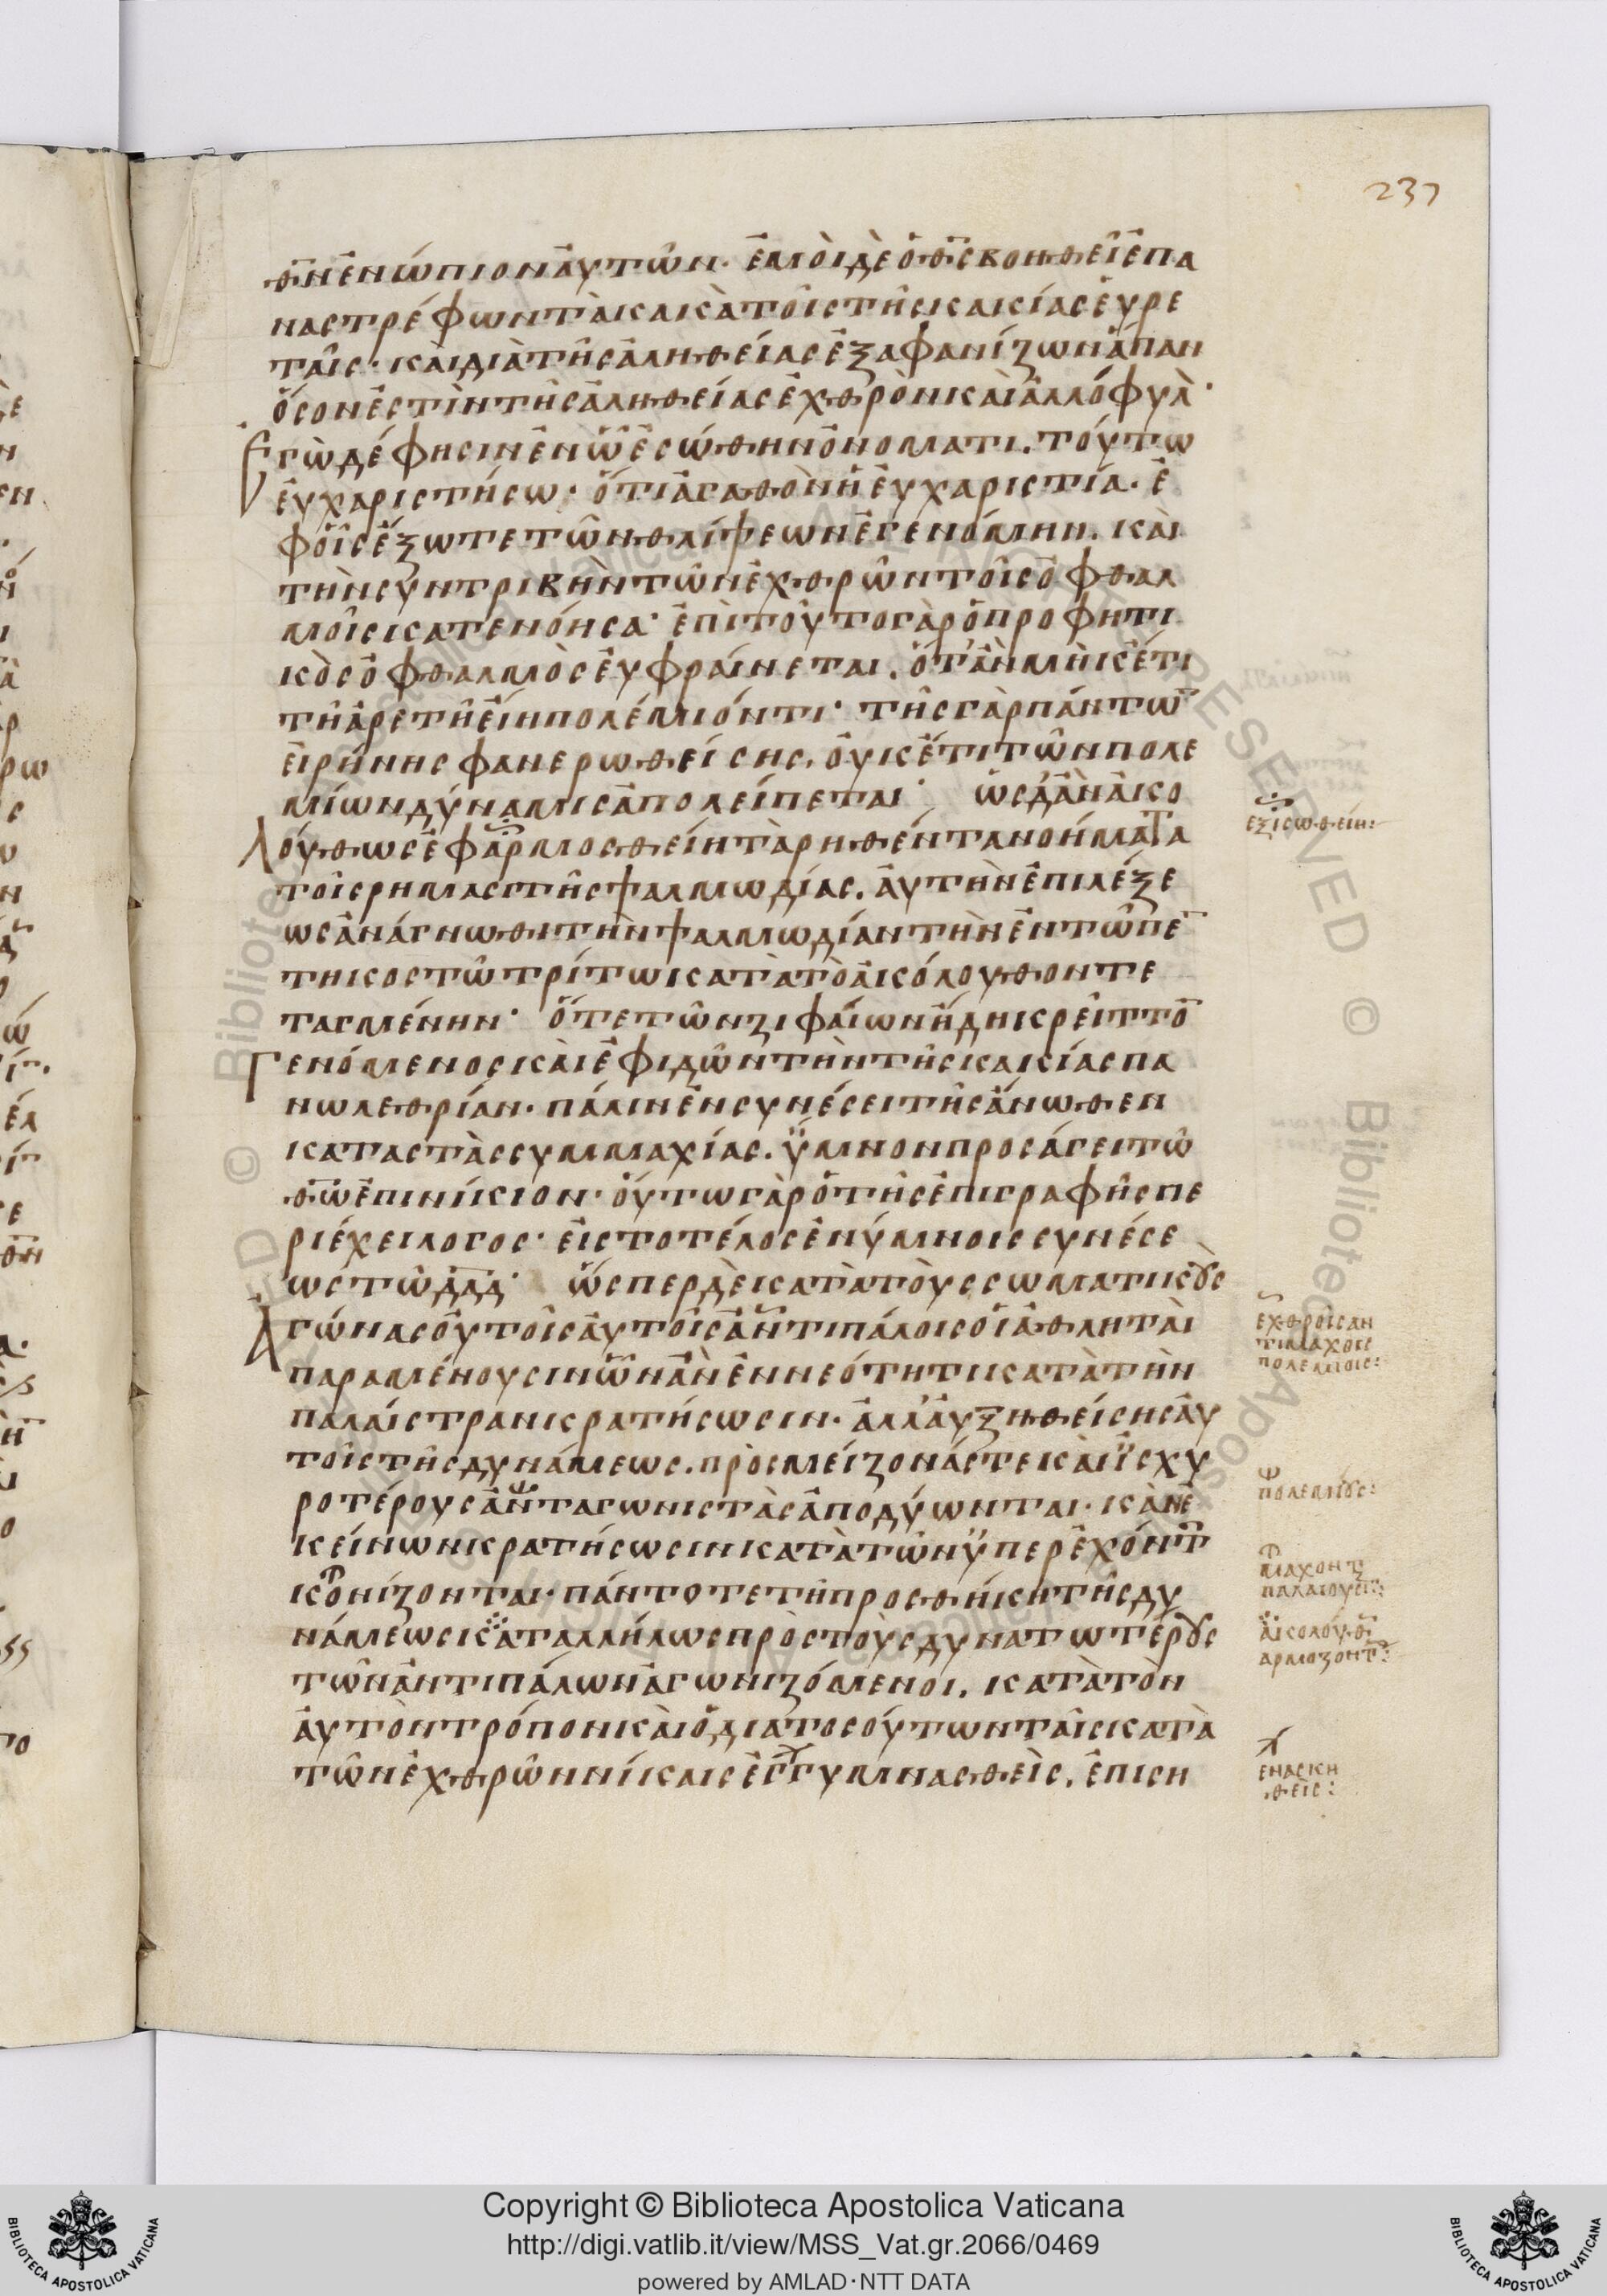 237
θ̅ν̅ ἐνώπιον αὐτῶν· ἐμοὶ δὲ ὁ θ̅ς̅ βοηθεῖ ἐπα
ναστρέφων τὰ κακὰ τοῖς τῆς κακίας εὑρε
ταῖς· καὶ διὰ τῆς ἀληθείας ἐξαφανίζων ἅπαν
ὅσον ἐστὶν τῆς ἀληθείας ἐχθρὸν καὶ ἀλλόφυλ·
Ἐγὼ δέ φησιν ἐν ᾧ ἐσώθην ὀνόματι. τούτω
εὐχαριστήσω· ὅτι ἀγαθὸν ἡ εὐχαριστία. ἐ
φ οἷς ἔξω τε τῶν θλίψεων ἐγενόμην. καὶ
τὴν συντριβὴν τῶν ἐχθρῶν τοῖς ὀφθαλ
μοῖς κατενόησα· ἐπὶ τοῦτο γὰρ ὁ προφητι
κὸς ὀφθαλμὸς εὐφραίνεται. ὅτ' ἂν μὴκέτι
τῆ ἀρετῆ εἴη πολέμιόν τι· τῆς γὰρ πάντων
εἰρήνης φανερωθείσης. οὐκέτι τῶν πολε
μίων δύναμις ἀπολείπεται· ὡς δ' ἂν ἀκο
λούθως ἐφαρμοσθείη τὰ ρηθέντα νοήματα
τοῖς ρήμασι τῆς ψαλμωδίας. αὐτὴν ἐπιλέξε
ως ἀνάγνωθι τὴν ψαλμωδίαν τὴν ἐν τῶ πε̅
τηκοστῶ τρίτω κατὰ τὸ ἀκόλουθον τε
ταγμένην· ὅτε τῶν ζιφαίων ἤδη κρείττο̅
γενόμενος καὶ ἐφιδὼν τὴν τῆς κακίας πα
νωλεθρίαν· πάλιν ἐν συνέσει τῆς ἄνωθεν
καταστὰς συμμαχίας. ὕμνον προσάγει τῶ
θ̅ω̅ ἐπινίκιον· οὕτω γὰρ ὁ τῆς ἐπιγραφῆς πε
ριέχει λόγος· εἰς το τέλος ἐν ὕμνοις συνέσε
ως τῶ δ̅α̅δ̅· ὥσπερ δὲ κατὰ τοὺς σωματικοὺς
ἀγώνας οὐ τοῖς αὐτοῖς ἀντιπάλοις οἱ ἀθληταὶ
παραμένουσιν ὧν ἂν ἐν νεότητι κατὰ τὴν
παλαίστραν κρατήσωσιν· ἀλλ' αὐξηθείσης αὐ
τοῖς τῆς δυνάμεως. πρὸς μείζονάς τε καὶ ἰσχυ
ροτέρους ἀνταγωνιστὰς ἀποδύωνται· κἀν ἐ
κείνων κρατήσωσιν κατὰ τῶν ὑπερεχόντ
κονίζονται· πάντοτε τῆ προσθήκη τῆς δυ
νάμεως καταλλήλως πρὸς τοὺς δυνατωτέρους
τῶν ἀντιπάλων ἀγωνιζόμενοι. κατὰ τὸν
αὐτὸν τρόπον καὶ ὁ διὰ τοσούτων ταῖς κατὰ
τῶν ἐχθρῶν νίκαις ἐγγυμνασθεὶς. ἐπιση
εξισωθείη:
εχθροῖς αν
τιμαχοις
πολεμιοις:
πολεμίους:
μαχοντ
παλαιουσιν:
ἀκολούθ
αρμοζοντ:
ενασκη
θεὶς:
BIBLIOTECA APOSTOLICA VATICANA
Copyright © Biblioteca Apostolica Vaticana
http://digi.vatlib.it/view/MSS_Vat.gr.2066/0469
powered by AMLAD·NTT DATA
BIBLIOTECA APOSTOLICA VATICANA